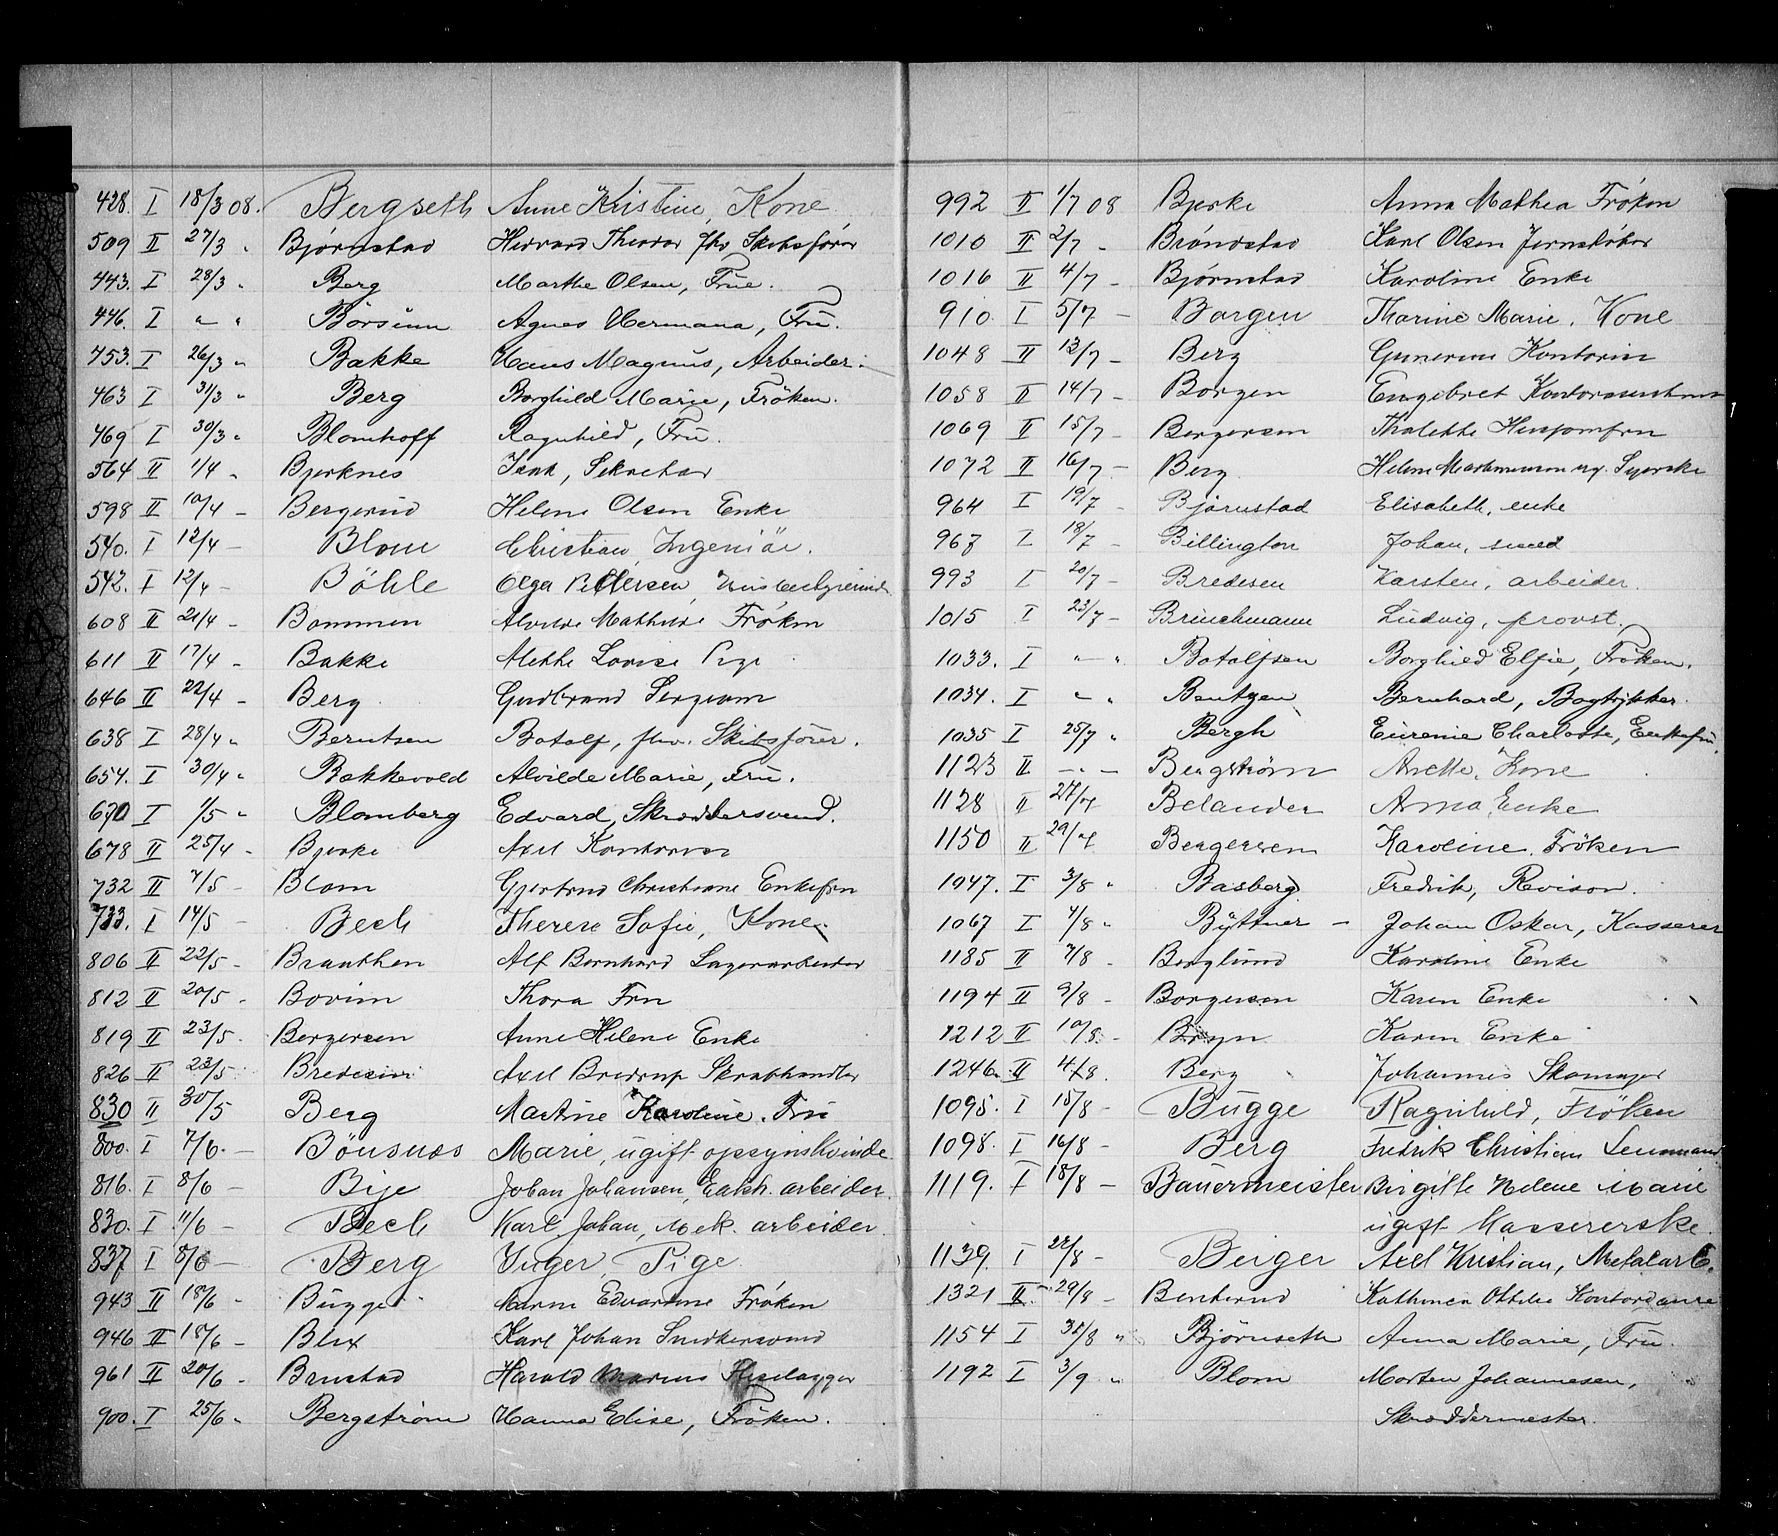 428. I 18/3 08. Bergseth Anne Kristine, Kone
509 II 27/3 " Bjørnstad Theodor fhv Skibsfører
443. I 28/3 " Berg Marthe Olsen, Frue.
446. I " " Börsum Agnes Hermana, Fru.
453. I 26/3 " Bakke Hans Magnus, Arbeider.
463 I 31/3 " Berg Borghild Marie, Fröken.
469 I 30/3 " Blomhoff Ragnhild, Fru.
564 II 1/4 " Bjerknes Sekretær
598 II 10/4 - Bergerud Helene Olsen Enke
540. I 12/4 - Blom Christian Ingeniör.
542. I 12/4 - Böhle Olga Pettersen,
608 II 21/4 - Bommen Alvilde Mathilde Frøken
611 II 17/4 " Bakke Methe Lovise Pige
646 II 22/4 - Berg Gudbrand Sergeant
638 I 28/4 " Berntsen Botolf, fhv. Skibsförer.
654. I 30/4 " Bakkevold Alvilde Marie, Fru.
670 I 1/5 " Blomberg Edvard, Skræddersvend.
678 II 25/4 - Bjerke Axel Kontorist
732 II 7/5 - Blom Gjertrud Christiane Enkefru
733. I 14/5 - Bech Therese Sofie, Kone.
806 II 22/5 - Braathen Alf Bernhard Lagerarbeider
812 II 20/5 - Bovim Thora Fru
819 II 23/5 - Bergersen Anne Helene Enke
826 II 23/5 - Bredesen Axel Bredrup Skrabhandler
830 II 30/5 Berg Martine Karoline. Fru
800. I 7/6. - Bönsnæs Marie, ugift opsynskvinde
816. I 8/6 - Bije Johan Johansen, arbeider.
830. I 11/6 - Bech Karl Johan, Mek. arbeider.
837 I 8/6 - Berg Inger, Pige
943 II 18/6 - Bugge Edvardine Frøken
946 II 18/6 - Blix Karl Johan Snedkersvend
961 II 20/6 - Brustad Harald Marius
900. I 25/6 " Bergström Hanna Elise, Fröken.
992 II 1/7 08 Bjerke Anna Mathea Frøken
1010 II 2/7 " Brøndstad Karl Olsen Jernstøber
1016 II 4/7 - Bjørnstad Karoline Enke
910 I 5/7 - Borgen Thorine Marie. Kone
1048 II 13/7 - Berg Kontorist
1058 II 14/7 - Borgen Engebret
1069 II 15/7 - Borgersen Thalette Husjomfru
1072 II 16/7 - Berg Helene ug. Syerske
964 I 19/7 - Bjørnstad Elisabeth, enke
967 I 18/7 - Billington Johan, smed
993 I 20/7 - Bredesen Karsten, arbeider.
1015 I 23/7 - Brüchmann Ludvig, provst.
1033. I " " Botolfsen Borghild Elfie, Fröken.
1034. I " " Bentzen Bernhard, Bogtrykker.
1035 I 25/7 " Bergh Eurenie Charlotte, Enkefru.
1123 II - " - Bergström Anette, Kone
1128 II 27/7 Belander Anna, Enke
1150 II 29/7 Bergersen Karoline, Frøken
1047. I 3/8 " Basberg Fredrik, Revisor.
1067 I 4/8 " Büttner - Johan Oskar, Kasserer
1185 II 7/8 - Berglund Karoline Enke
1194 II 9/8 - Borgersen Karen Enke
1212 II 10/8 - Bryn Karen Enke
1246. II 14/8. Berg Johannes Skomager
1095. I 15/8 - Bugge Ragnhild, Fröken
1098. I 16/8 - Berg Fredrik Christian Lensmand
1119. I 18/8 - Bauermeister Birgitte Helene Marie
ugift Kassererske.
1139. I 22/8 - Beiger Axel Kristian, Metalarb.
1321 II 29/8 - Benterud Kathinca Ottilie
1154 I 31/8 " Björnseth Anna Marie, Fru.
1192 I 3/9 " Blom Morten Johannesen,
Skræddermester.